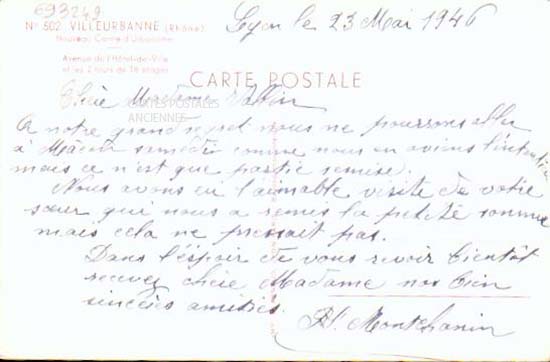 693249
Nº 502 VILLEURBANNE (Rhône)
Nouveau Centre d'Urbanisme
Avenue de l'Hôtel-de-Ville
et les 2 tours de 18 étages
Lyon le 23 Mai 1946
CARTE POSTALE
CARTES POSTALES
ANCIENNES
Chère Madame
A notre grand regret nous ne pourrons aller
à Mâcon samedi comme nous en avions l'intention
mais ce n'est que partie remise.
Nous avons eu l'aimable visite de votre
sœur qui nous a remis la petite somme
mais cela ne pressait pas.
Dans l'espoir de vous revoir bientôt
recevez chère Madame nos bien
sincères amitiés.
Montchanin